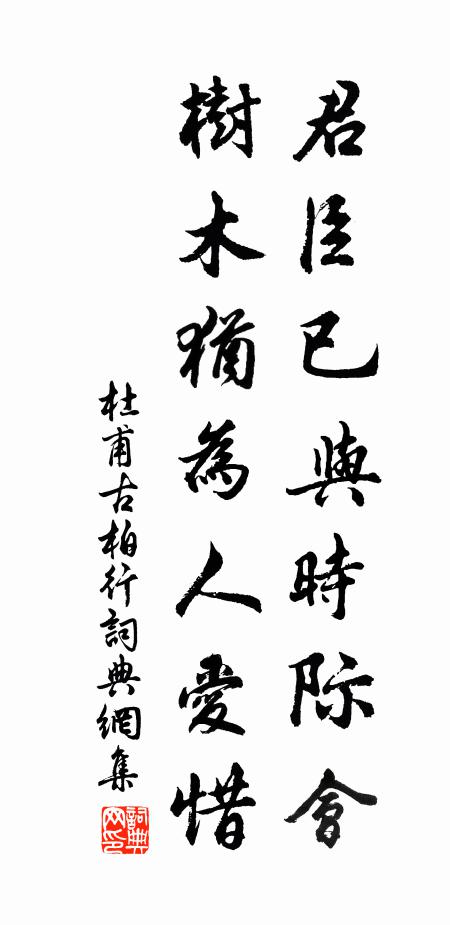 君臣已與時际會
樹木猶為人愛惜
杜甫古柏行詞典網集
詞典网印